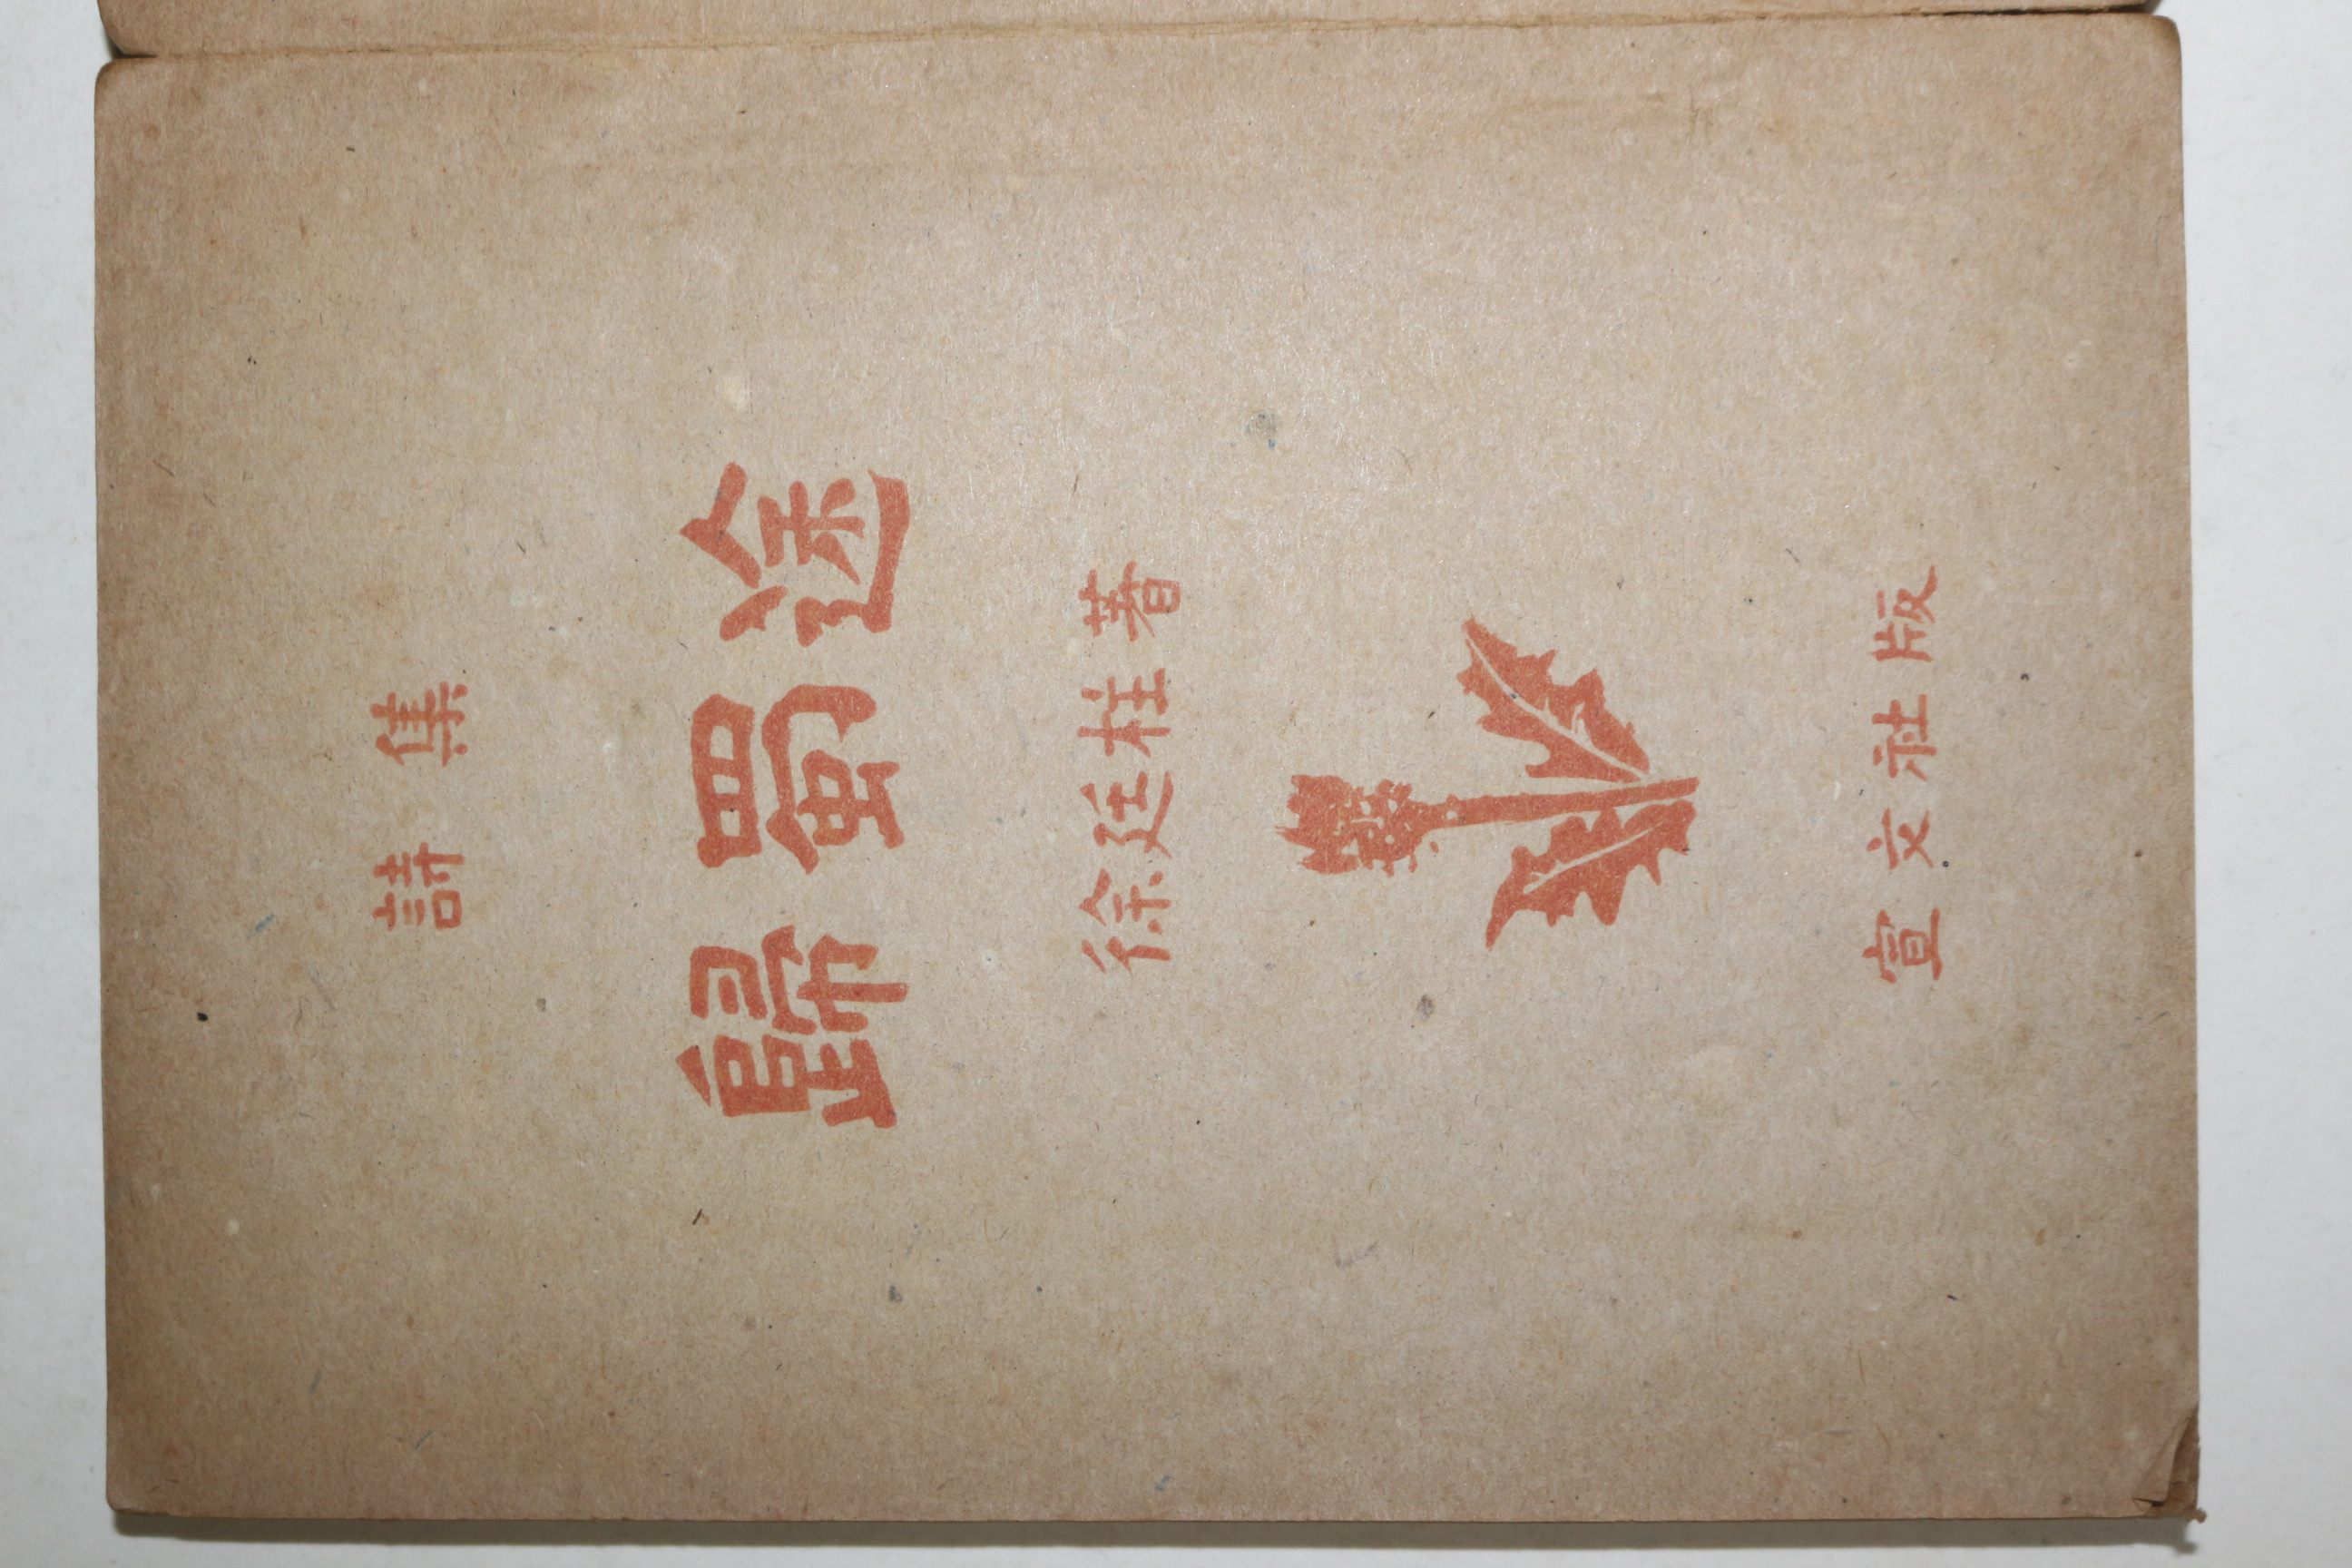 詩集
歸蜀途
徐廷柱著
宣文社版